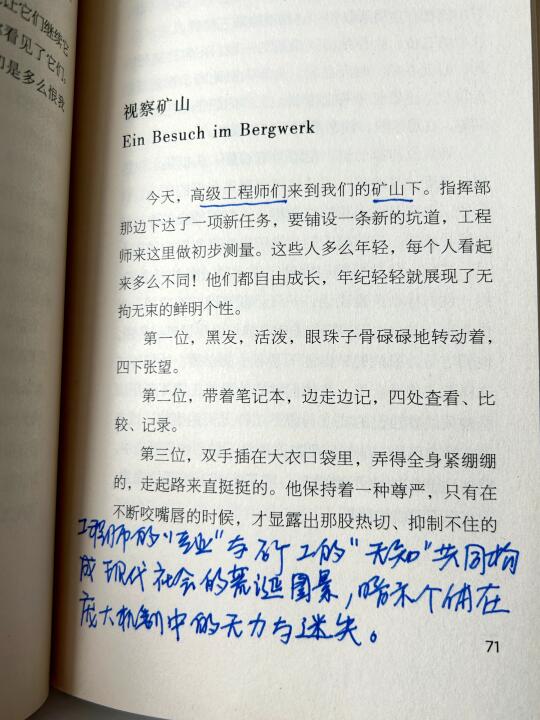 让它们继续它
看见了它们。
是多么恨我
视察矿山
Ein Besuch im Bergwerk
今天，高级工程师们来到我们的矿山下。指挥部
那边下达了一项新任务，要铺设一条新的坑道，工程
师来这里做初步测量。这些人多么年轻，每个人看起
来多么不同！他们都自由成长，年纪轻轻就展现了无
拘无束的鲜明个性。
第一位，黑发，活泼，眼珠子骨碌碌地转动着，
四下张望。
第二位，带着笔记本，边走边记，四处查看、比
较、记录。
第三位，双手插在大衣口袋里，弄得全身紧绷绷
的，走起路来直挺挺的。他保持着一种尊严，只有在
不断咬嘴唇的时候，才显露出那股热切、抑制不住的
工程师的“专业”与矿工的“无知”共同构
成现代社会的荒诞图景，暗示个体在
庞大机制中的无力与迷失。
71